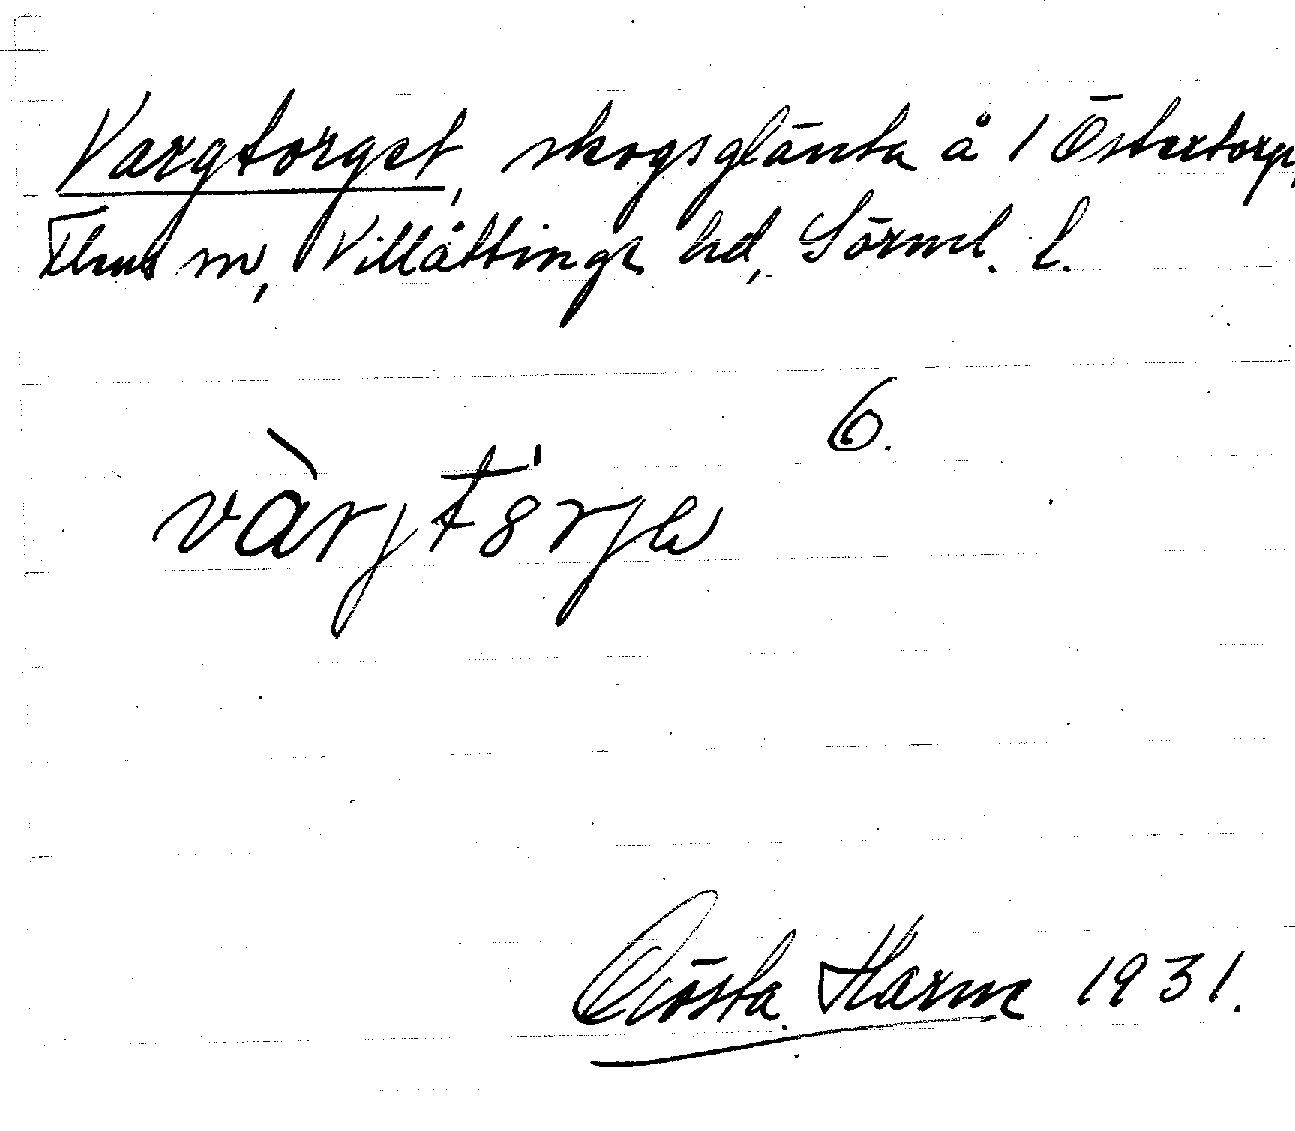 Vargtorget, skogsglänta å 1 Östertorp,
Flens sn, Villåttinge hd, Sörml. l.
6.
vàrjtȣ'rje
Gösta Harme 1931.